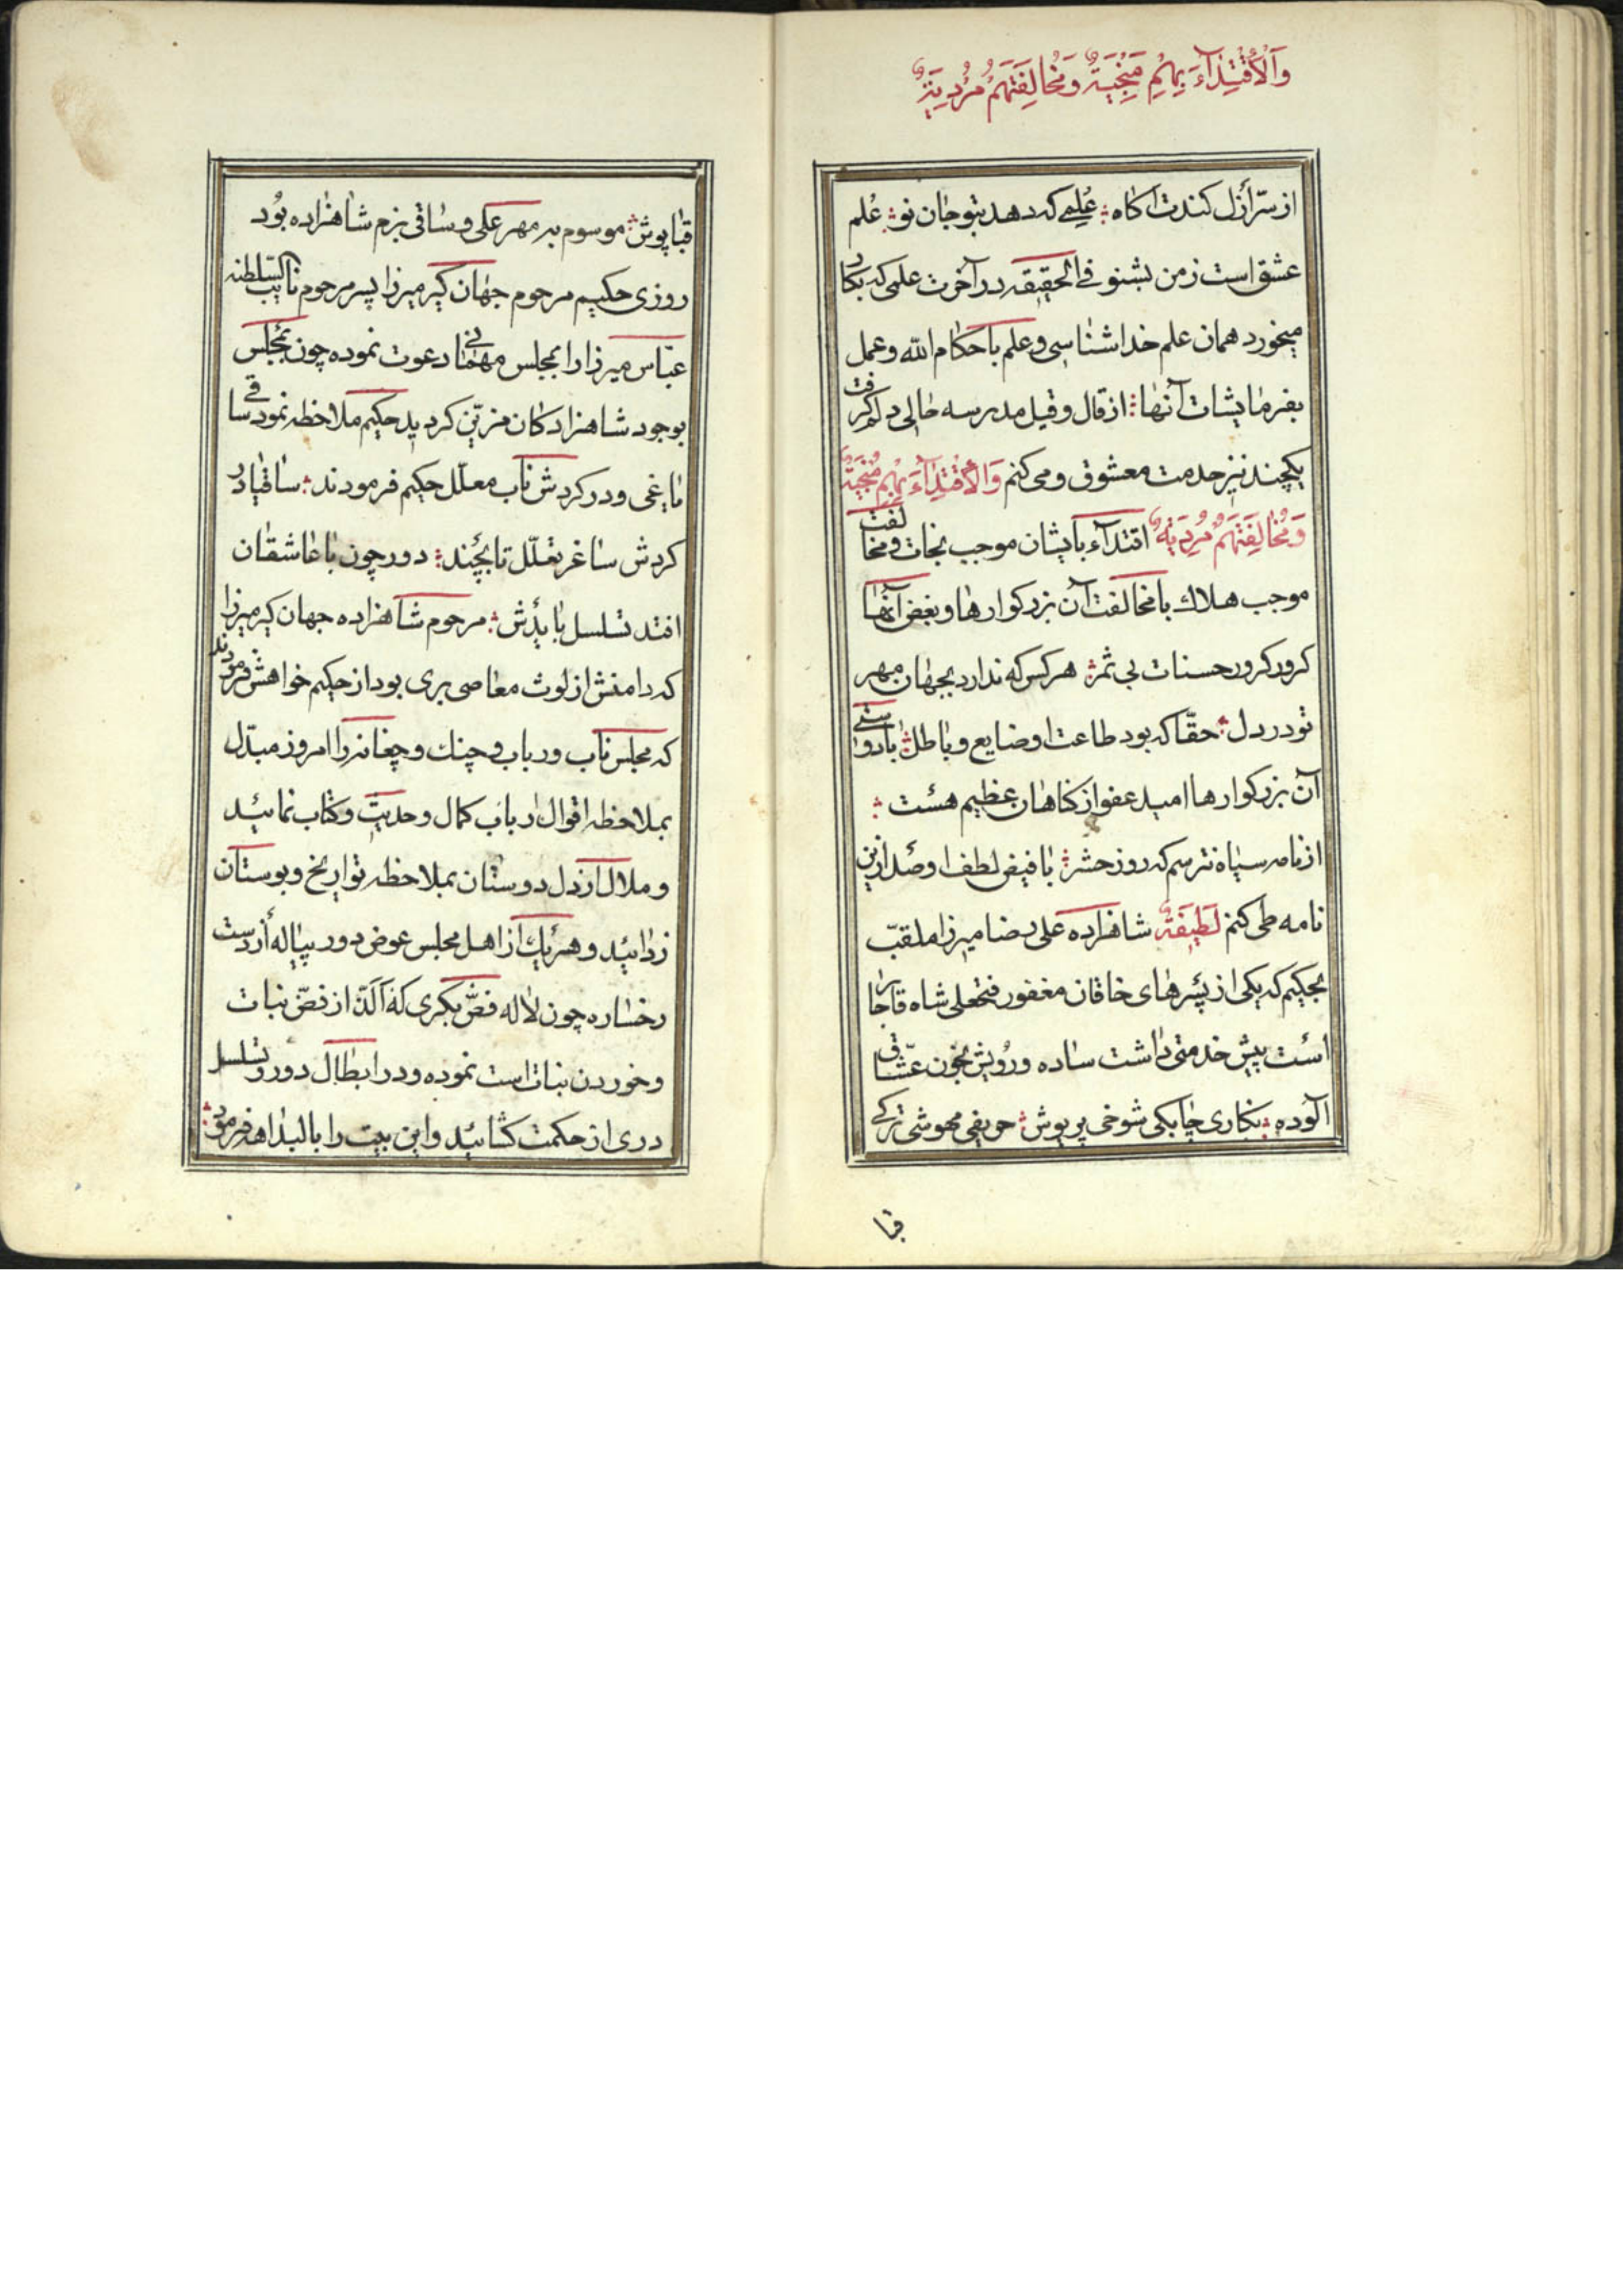 وَالْاُقْتِدٰآءَ بِهِمْ مُنْجِيَةٌ وَمُخالِفَتَهُمْ مُرْدِيَةٌ
از سرّ أزل کندت اکاه ؞ علمی که دهد بتو جان نو ؞ علم
عشق است ز من بشنو في الحقیقه در آخرت علمی که بکار
میخورد همان علم خدا شناسی و علم باحکام الله و عمل
بفرمایشات آنها ؞ از قال و قیل مدرسه حالی دلم کرفت
یکچند نیز خدمت معشوق و می کنم وَالْأقْتِدٰآءَ بِهِمْ مُنْجِيَةٌ
وَمُخٰالِفَتَهُمْ مُرْدِيَةٌ اقتدآء بایشان موجب نجات و مخالفت
موجب هلاك با مخالفت آن بزرکوارها و بغض آنها
کرور کرور حسنات بی ثمر ؞ هر کس که ندارد بجهان مهر
تو در دل ؞ حقّا که بود طاعت او ضایع و باطل ؞ با دوستی
آن بزرکوارها امید عفو از کناهان عظیم هست ؞
از نامه سیاه نترسم که روز حشر ؞ با فیض لطف او صد ازین
نامه طی کنم لَطِيفَةٌ شاهزاده علی رضا میرزا ملقب
بحکیم که یکی از پسرهای خاقان مغفور فتحعلی شاه قاجار
است پیش خدمتی داشت ساده و رویش بخون عشّاق
آلوده ؞ نکاری چابکی شوخی پریوش ؞ حریفی مهوشی ترکی
قبا
قبا پوش ؞ موسوم به مهر علی و ساقی بزم شاهزاده بود
روزی حکیم مرحوم جهان کیر میرزا پسر مرحوم نایب السلطنه
عبّاس میرزا را بمجلس مهمانی دعوت نموده چون مجلس
بوجود شاهزادکان مزیّن کردید حکیم ملاحظه نمود ساقی
یاغی و در کردش ناب معلّل حکیم فرمودند ؞ ساقیا در
کردش ساغر تعلّل تا بچند ؞ دور چون با عاشقان
افتد تسلسل بایدش ؞ مرحوم شاهزاده جهان کیر میرزا
که دامنش از لوث معاصی بری بود از حکیم خواهش فرمودند
که مجلس ناب و رباب و چنك و چغانه را امروز مبدّل
بملاحظه اقوال ارباب کمال و حدیث و کتاب نمائید
و ملال از دل دوستان بملاحظه تواریخ و بوستان
زدائید و هر یك از اهل مجلس عوض دور پیاله از دست
رخساره چون لاله فضّ بکری که آلذّ از فضّ نبات
و خوردن نبات است نموده و در ابطال دور و تسلسل
دری از حکمت کشائید و این بیت را بالبداهه فرمود ؞